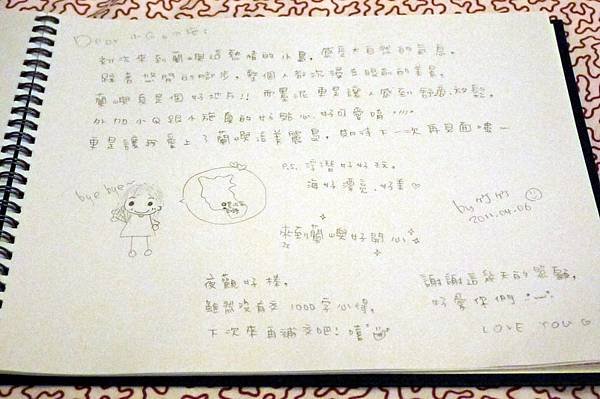 Dear 小Q & 小施:
初次來到蘭嶼這熱情的小島,感受大自然的氣息。
踏著悠閒的腳步,整個人都沉浸在眼前的美景。
蘭嶼真是個好地方!! 而墨泥更是讓人感到舒適放鬆。
外加小Q跟小施真的好貼心.好可愛唷
更是讓我愛上了蘭嶼這美麗島,期待下一次再見面嘍~
P.S. 浮潛好好玩,
海好漂亮.好美♡
bye bye~
by 竹竹
2011.04.06
來到蘭嶼好開心
夜觀好棒,
雖然沒有交1000字心得,
下次來再補交吧!嘻
謝謝這幾天的照顧,
好愛你們
LOVE YOU